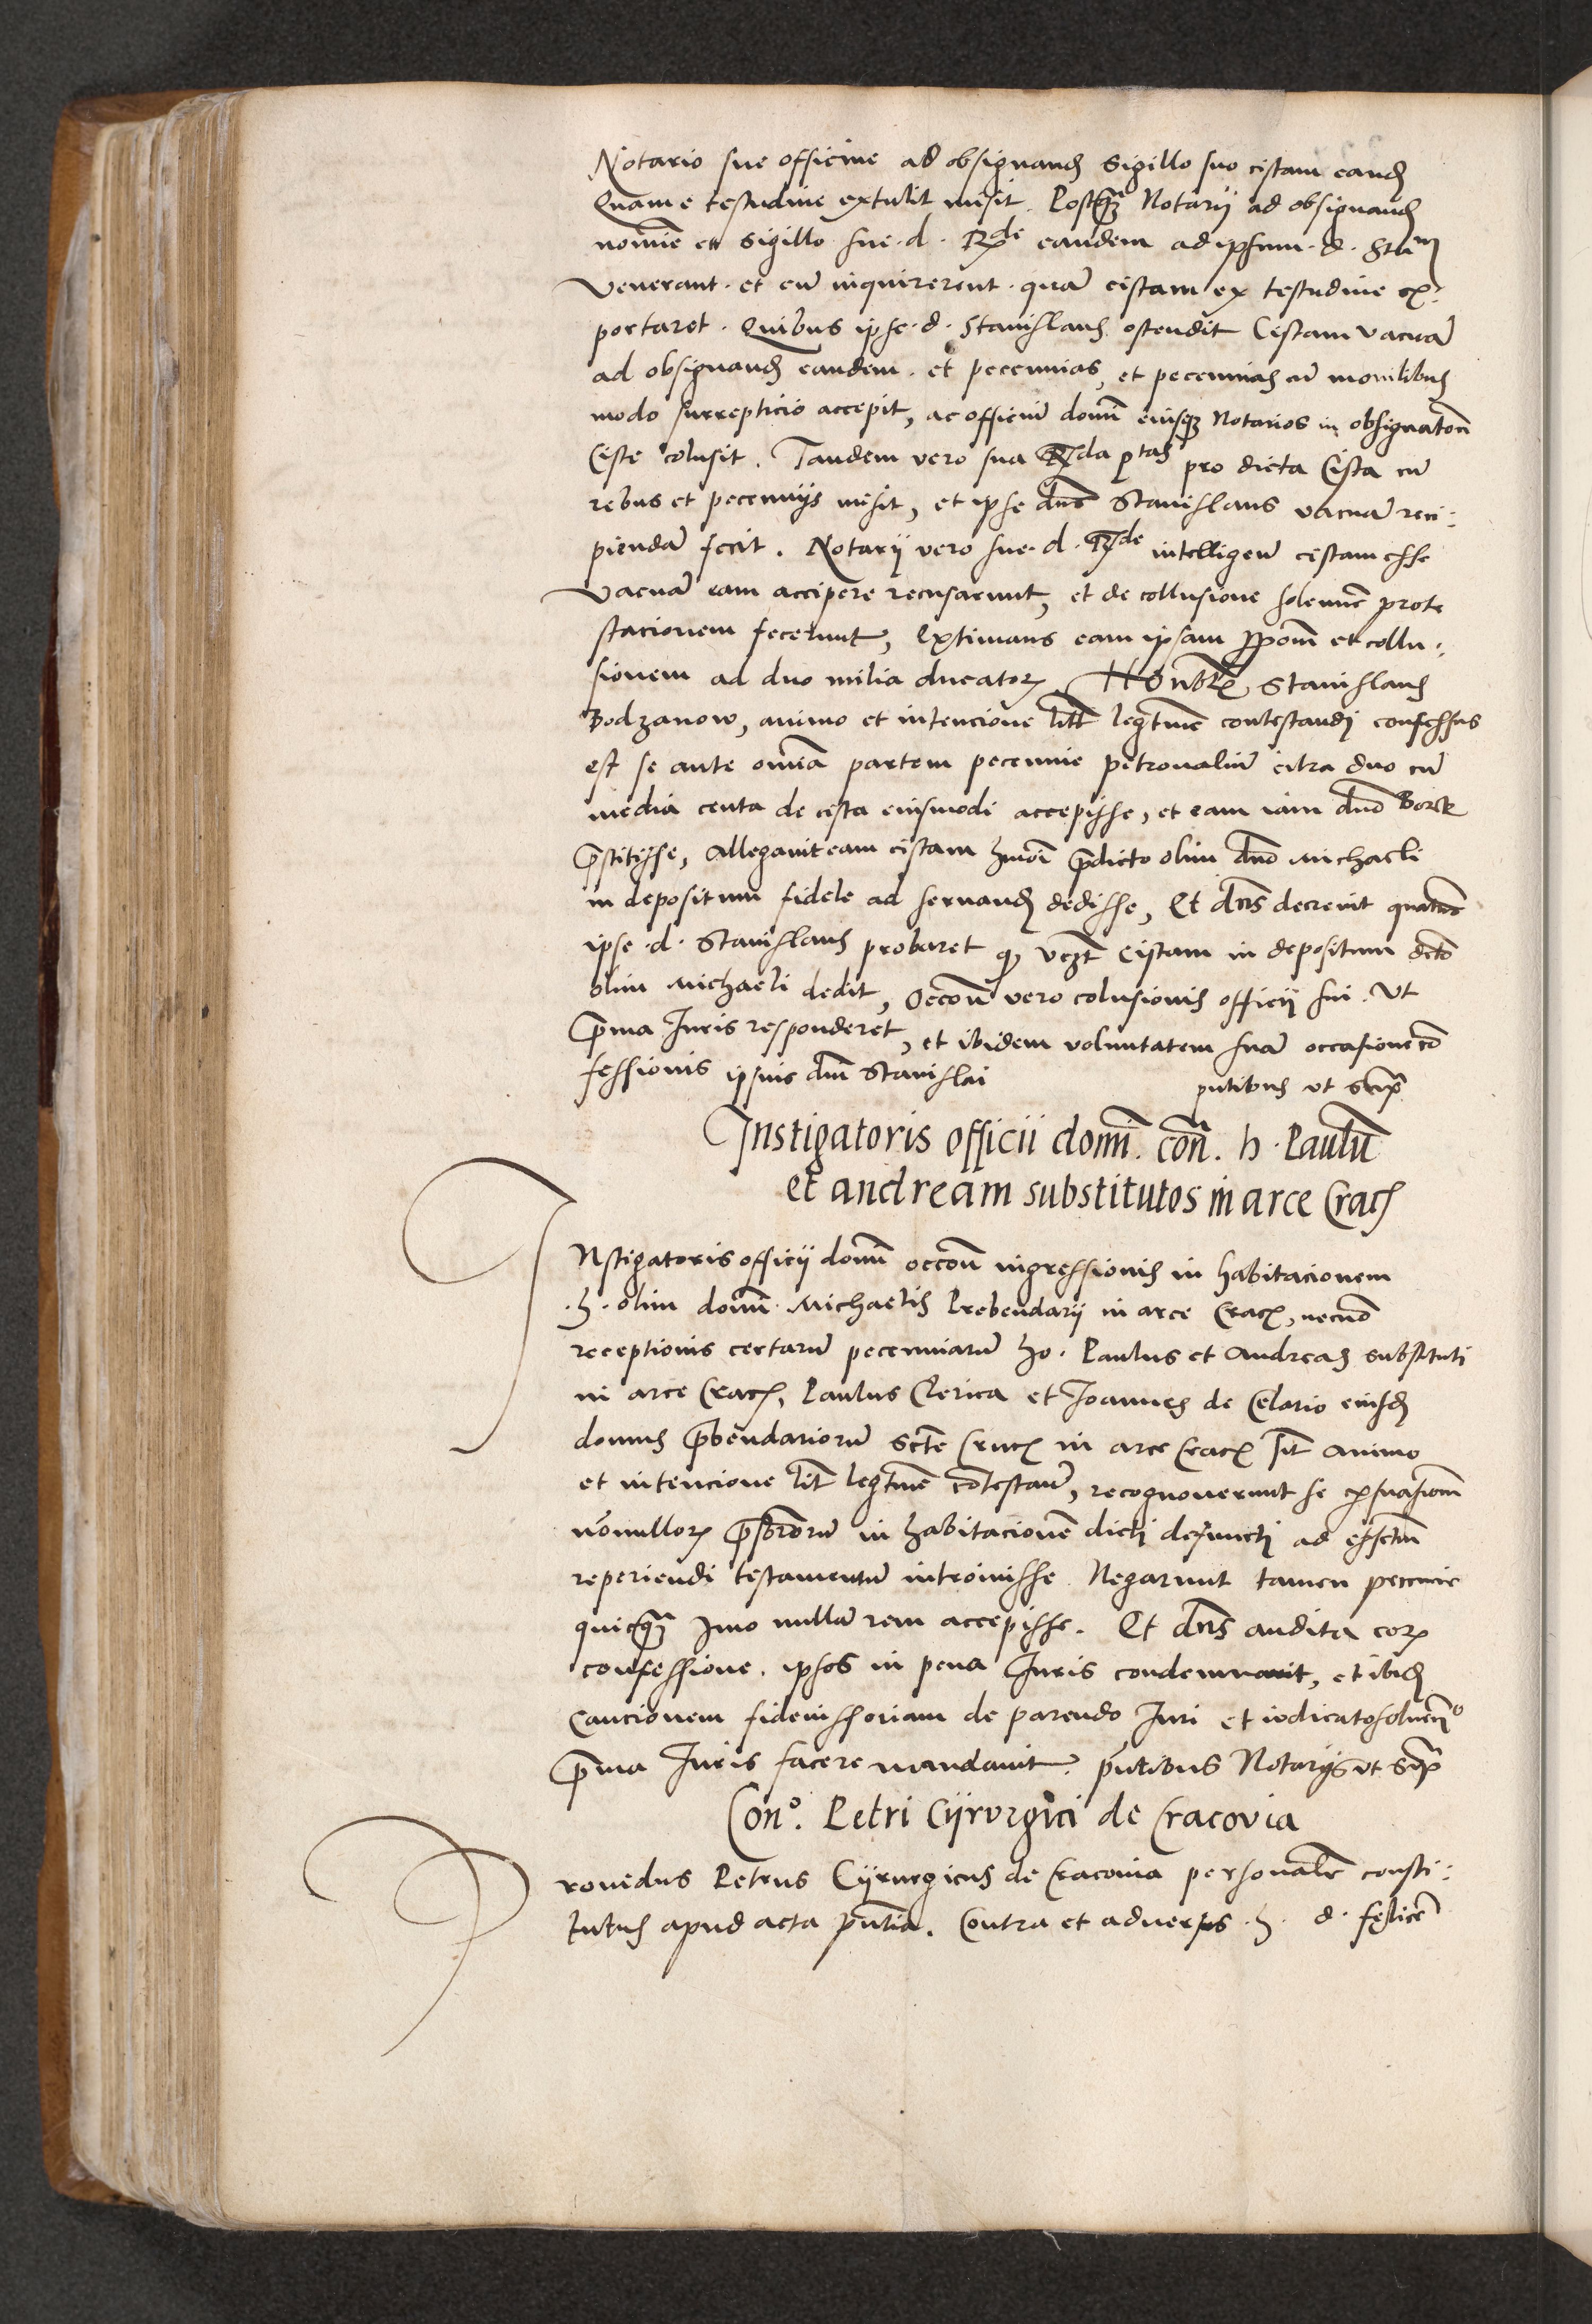 Notario sue officine ad obsignand Sigillo suo cistam eand
Quam e testudine extulit misit. Postq̃ȝ Notarii ad obsignand
nomiē et sigillo sue · d · R̃de eandem ad ipsum · d · Stãm
venerant · et cū inquirerent · quā cistam ex testudine ex-
portaret · Quibus ipse · d · Stanislaus ostendit Cistam vacuā
ad obsignand eandem · et pecennias, et pecennias cū monilibus
modo surrepticio accepit, ac officiū domī eiusqȝ Notarios in obsignatōn
Ciste colusit. Tandem vero sua R̃da ptas pro dicta Cista cū
rebus et pecenniis misit, et ipse dns Stanislaus vacuā reci-
piendā fecit. Notarii vero sue · d · R̃de intelligen̄ cistam esse
vacuā eam accipere recusarunt, et de collusione solemnē prote
stacionem fecerunt, Extimans eam ipsam ꝓpoñ et collu-
sionem ad duo milia ducatoꝝ. Honorab̄ Stanislaus
Bodzanow, animo et intencione litt̄ legtmē contestandi confessus
est se ante omīa partem pecennie petronaliū citra duo cū
media centa de cista eiusmodi accepisse, et eam iam dnō Borck
p̄stitisse, Allegavit eam cistam hmōi p̄dicto olim dnō Michaeli
in depositum fidele ad servand dedisse, Et dn̄s decrevit quatn̄s
ipse · d · Stanislaus probaret qȝ vezt̄ Cistam in depositum dcto
olim Michaeli dedit, Occōn̄ vero colusionis officii sui · Ut
p̄ma Juris responderet, et ibidem voluntatem suā occasione cō
fessionis ipsius dnī Stanislai p̄ntibus ut sup̄
Instigatoris officii domī. con̄. h · Paulū
et andream substitutos in arce Crac
Instigatoris officii domī occōn̄ ingressionis in habitacionem
· h · olim domī · Michaelis Prebendarii in arce Crac, necnō
receptionis certarū pecenniarū ho · Paulus et Andreas substituti
in arce Crac, Paulus Clerica et Joannes de Celario eiusd
domus p̄bendariorū Scte Cruc in arce Crac sīt animo
et intencione lit̄ legtmē cōtestan̄, recognoverunt se ꝑsuasionem
nōnulloꝝ p̄sbrorū in habitacionē dicti defuncti ad effctū
reperiendi testamentū introivisse. Negarunt tamen pecenie
quicq̃ȝ Imo nullā rem accepisse. Et dn̄s audita eoꝝ
confessione · ipsos in pena Juris condemnavit, et ibid
Caucionem fideiussoriam de parendo Juri et iudicato solven̄o
p̄ma Juris facere mandavit. p̄ntibus Notariis ut sup̄
Con°. Petri Cijrurgici de Cracovia
Providus Petrus Cijrurgicus de Cracovia personalr̄ consti-
tutus apud acta p̄ntia. Contra et adversus · h · d · felicē